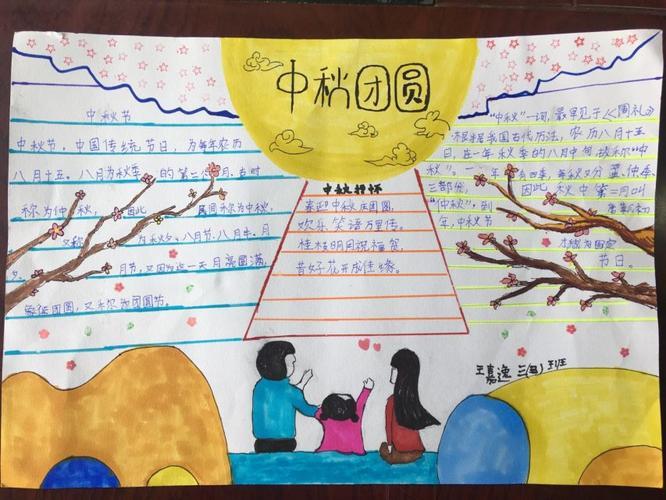 中秋团圆
中秋节
中秋节,中国传统节日,为每年农历
八月十五。八月为秋季的第二个月,古时
称为仲秋,因此民间称为中秋,
又称为秋夕、八月节、八月半、月
夕、月节,又因为这一天月亮圆满,
象征团圆,又称为团圆节。
中秋抒怀
喜迎中秋庆团圆,
欢乐笑语万里传。
桂枝明月祝福贺,
昔好花开成佳缘。
“中秋”一词,最早见于《周礼》
根据我国古代历法,农历八月十五
日,在一年秋季的八月中旬,故称“中
秋”。一年有四季,每季又分孟、仲、季
三部份,因此秋中第二月叫
“仲秋”,到
年,中秋节
才成为固定
节日。
王嘉逸 三(四)班